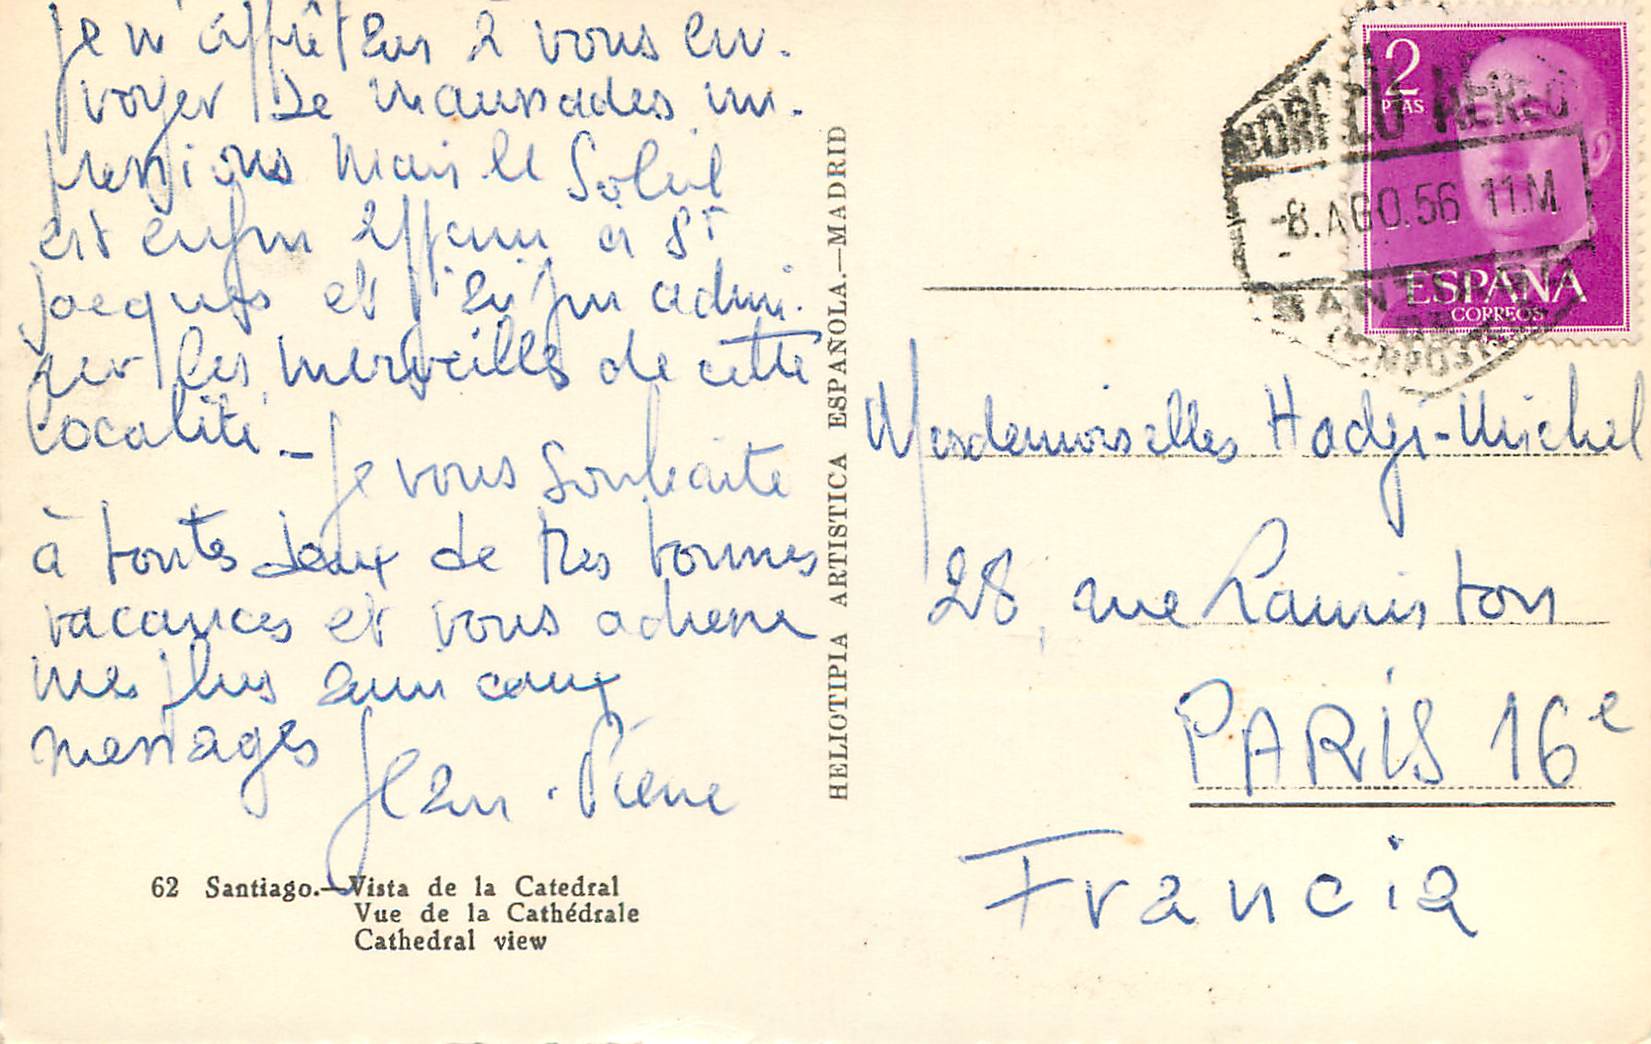 je m'apprêtais à vous en-
voyer de maussades im-
pressions mais le Soleil
est enfin apparu à St
Jacques et j'ai pu admi-
rer les merveilles de cette
localité_
Je vous souhaite
à toutes deux de très bonnes
vacances et vous adresse
mes plus amicaux
messages
Jean-Pierre
62 Santiago.—Vista de la Catedral
Vue de la Cathédrale
Cathedral view
HELIOTIPIA ARTISTICA ESPAÑOLA.—MADRID
2
PTAS
ESPAÑA
CORREOS
CORREO AEREO
-8.AGO.56 11M
Mesdemoiselles Hadji-Michel
28, rue Lauriston
PARIS 16e
Francia